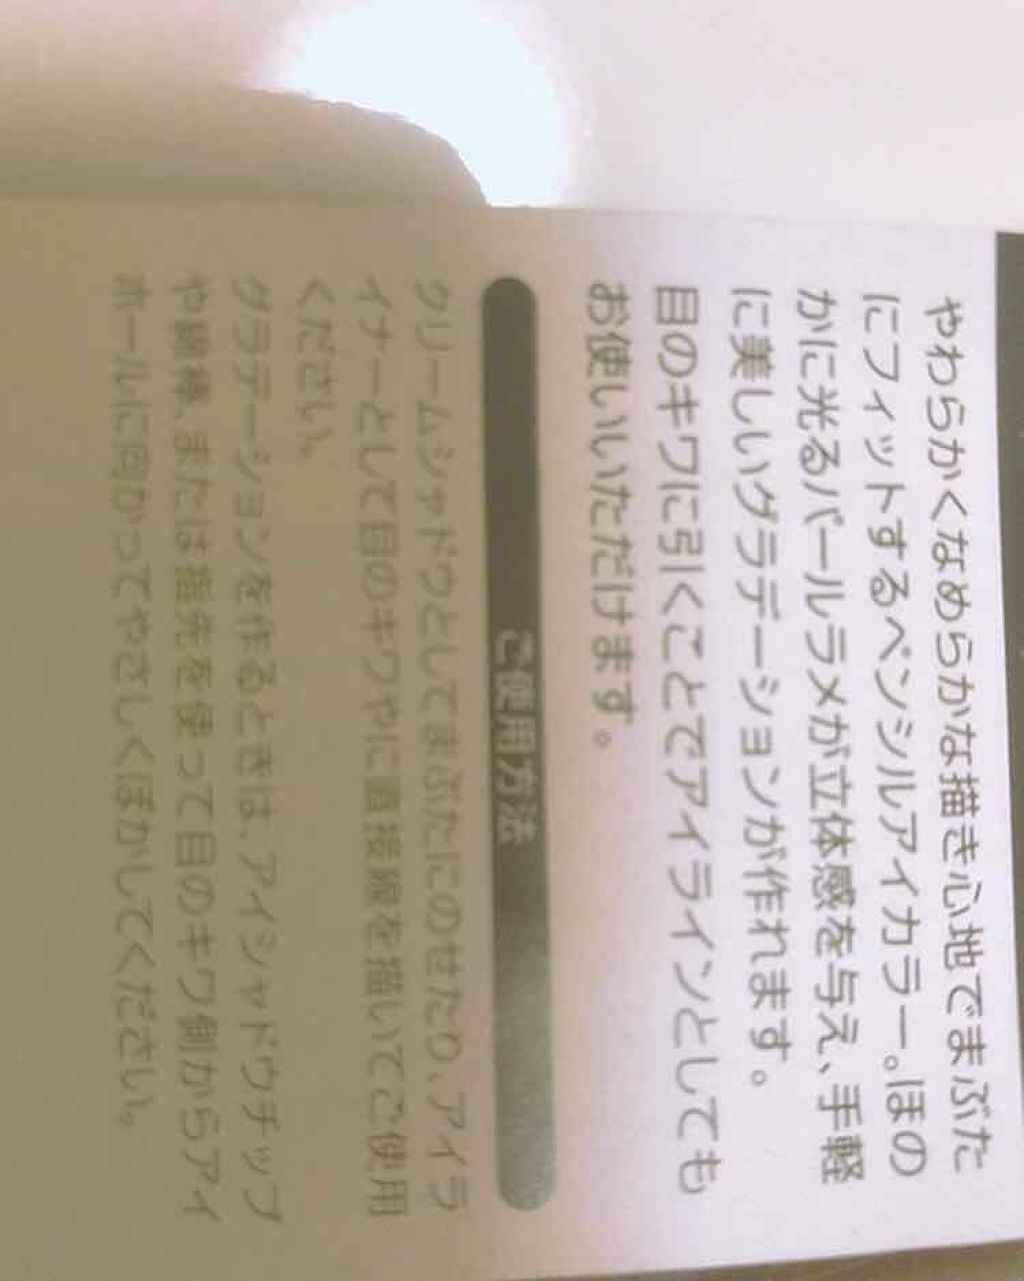 やわらかくなめらかな描き心地でまぶた
にフィットするペンシルアイカラー。ほの
かに光るパールラメが立体感を与え、手軽
に美しいグラデーションが作れます。
目のキワに引くことでアイラインとしても
お使いいただけます。
ご使用方法
クリームシャドウとしてまぶたにのせたり、アイラ
イナーとして目のキワやに直接線を描いてご使用
ください。
グラデーションを作るときは、アイシャドウチップ
や綿棒、または指先を使って目のキワ側からアイ
ホールに向かってやさしくぼかしてください。